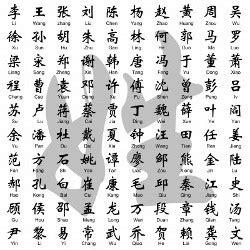 李 王 张 刘 陈 杨 赵 黄 周 吴
Li Wang Zhang Liu Chen Yang Zhao Huang Zhou Wu
徐 孙 胡 朱 高 林 何 郭 马 罗
Xu Sun Hu Zhu Gao Lin He Guo Ma Luo
梁 宋 郑 谢 韩 唐 冯 于 董 萧
Liang Song Zheng Xie Han Tang Feng Yu Dong Xiao
程 曹 袁 邓 许 傅 沈 曾 彭 吕
Cheng Cao Yuan Deng Xu Fu Shen Zeng Peng Lü
苏 卢 蒋 蔡 贾 丁 魏 薛 叶 阎
Su Lu Jiang Cai Jia Ding Wei Xue Ye Yan
余 潘 杜 戴 夏 钟 汪 田 任 姜
Yu Pan Du Dai Xia Zhong Wang Tian Ren Jiang
范 方 石 姚 谭 廖 邹 熊 金 陆
Fan Fang Shi Yao Tan Liao Zou Xiong Jin Lu
郝 孔 白 崔 康 毛 邱 秦 江 史
Hao Kong Bai Cui Kang Mao Qiu Qin Jiang Shi
顾 侯 邵 孟 龙 万 段 章 钱 汤
Gu Hou Shao Meng Long Wan Duan Zhang Qian Tang
尹 黎 易 常 武 乔 贺 赖 龚 文
Yin Li Yi Chang Wu Qiao He Lai Gong Wen
姓